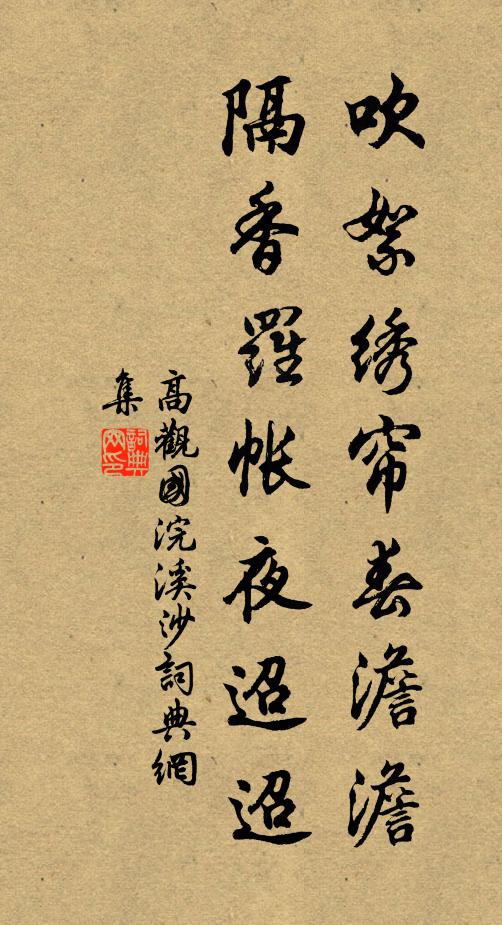 吹絮绣帘春澹澹
隔香羅帳夜迢迢
高觀國浣溪沙詞典網
集
詞典网印